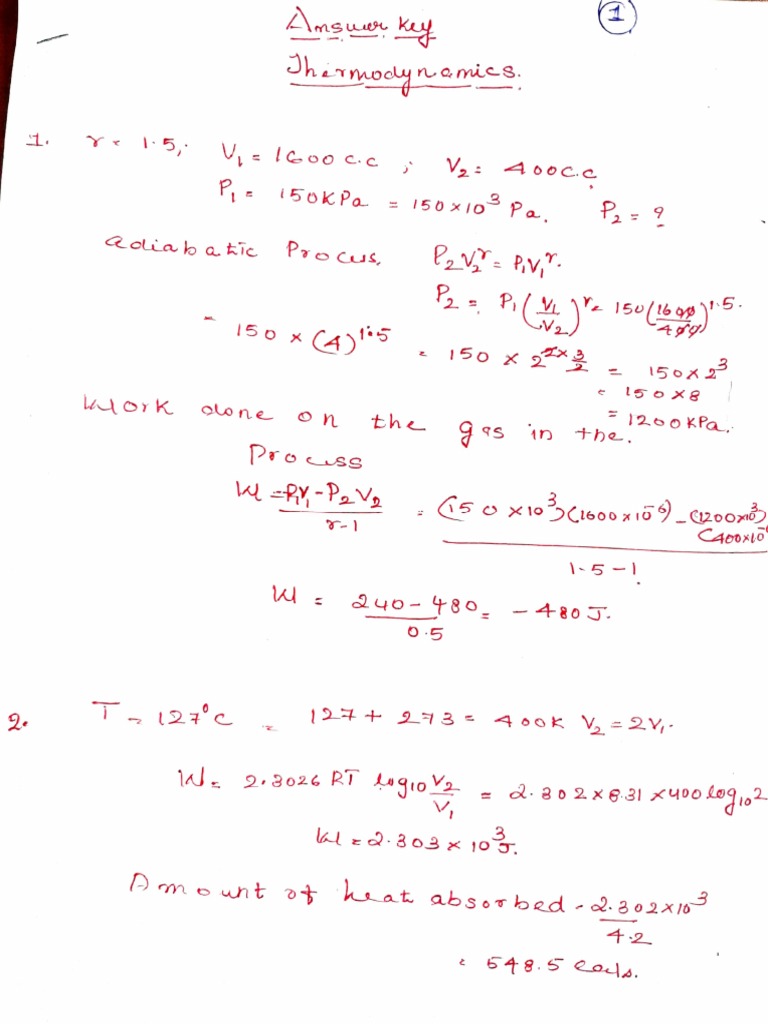 1
Answer key
Thermodynamics.
1. r = 1.5, V₁ = 1600 c.c ; V₂ = 400 c.c.
P₁ = 150KPa = 150×10³ Pa. P₂ = ?
adiabatic Process, P₂V₂ʳ = P₁V₁ʳ.
P₂ = P₁(V₁/V₂)ʳ = 150(1600/400)^1.5.
= 150 × (4)^1.5 = 150 × 2^(2×3/2) = 150×2³
= 150×8
= 1200KPa.
Work done on the gas in the.
Process
W = (P₁V₁-P₂V₂)/(r-1) = ((150×10³)(1600×10⁻⁶)-(1200×10³)(400×10⁻⁶))/(1.5-1)
W = (240-480)/0.5 = -480J.
2. T = 127°C = 127 + 273 = 400K V₂ = 2V₁.
W = 2.3026 RT log₁₀ V₂/V₁ = 2.302×8.31×400 log₁₀2
W = 2.303×10³J.
Amount of heat absorbed = 2.302×10³/4.2
= 548.5 cals.